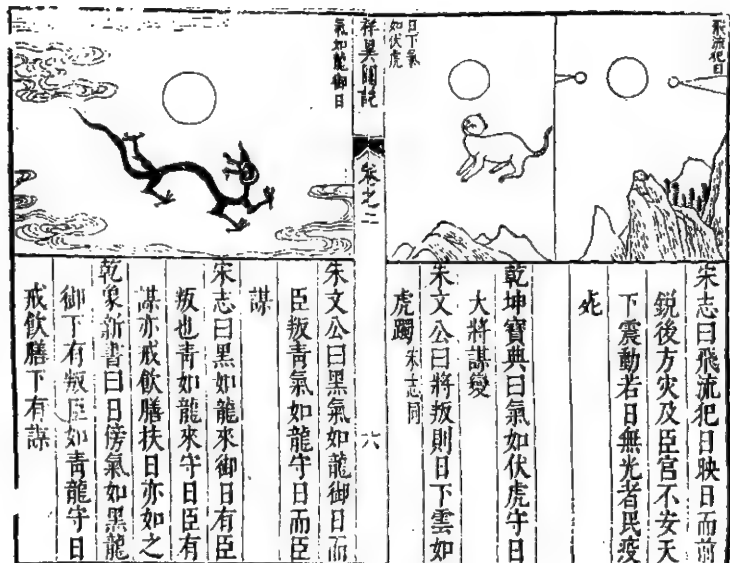 飛流犯日
宋志曰飛流犯日映日而前
銳後方灾及臣官不安天
下震動若日無光者民疫
死
日下氣
如伏虎
乾坤寶典曰氣如伏虎守日
大將謀變
朱文公曰將叛則日下雲如
虎躅 宋志同
祥異圖說
卷之二
六
氣如龍御日
朱文公曰黑氣如龍御日而
臣叛靑氣如龍守日而臣
謀
宋志曰黑如龍來御日有臣
叛也靑如龍來守日臣有
謀亦戒飲膳扶日亦如之
乾象新書曰日傍氣如黑龍
御下有叛臣如靑龍守日
戒飲膳下有謀